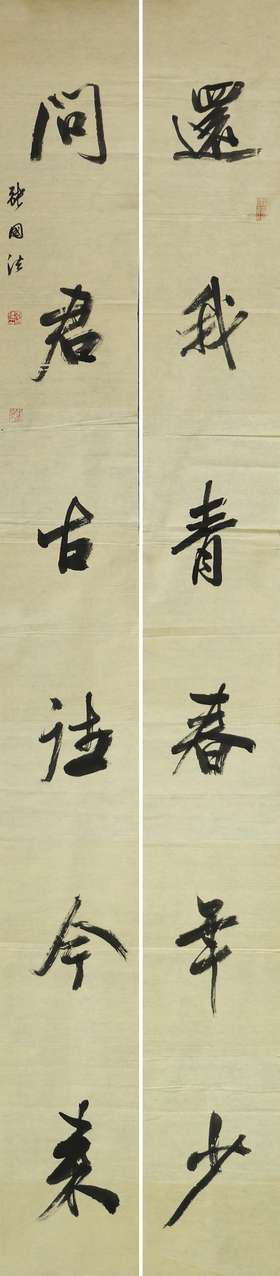 還我青春年少
問君古往今来
張國法